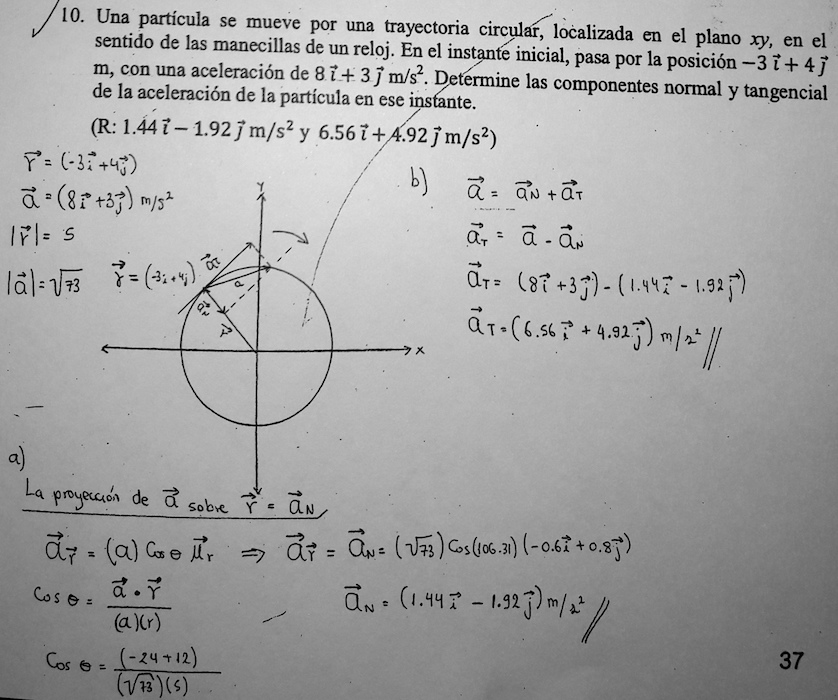 10. Una partícula se mueve por una trayectoria circular, localizada en el plano xy, en el
sentido de las manecillas de un reloj. En el instante inicial, pasa por la posición −3 i⃗ + 4 j⃗
m, con una aceleración de 8 i⃗ + 3 j⃗ m/s². Determine las componentes normal y tangencial
de la aceleración de la partícula en ese instante.
(R: 1.44 i⃗ − 1.92 j⃗ m/s² y 6.56 i⃗ + 4.92 j⃗ m/s²)
r⃗ = (-3i⃗ + 4j⃗)
a⃗ = (8i⃗ + 3j⃗) m/s²
|r⃗| = 5
|a⃗| = √73
r⃗ = (-3i + 4j)
a⃗T
a
a⃗N
r⃗
Y
X
b)
a⃗ = a⃗N + a⃗T
a⃗T = a⃗ - a⃗N
a⃗T = (8i⃗ + 3j⃗) - (1.44i⃗ - 1.92j⃗)
a⃗T = (6.56 i⃗ + 4.92j⃗) m/s² //
a)
La proyección de a⃗ sobre r⃗ = a⃗N
a⃗r⃗ = (a) Cos θ μ⃗r ⇒ a⃗r⃗ = a⃗N = (√73) Cos(106.31) (-0.6i⃗ + 0.8j⃗)
Cos θ = a⃗ • r⃗ / (a)(r)
a⃗N = (1.44 i⃗ - 1.92j⃗) m/s² //
Cos θ = (-24 + 12) / (√73)(5)
37